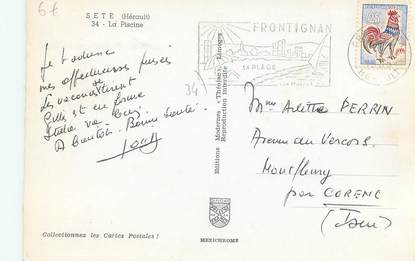 6€
SETE (Hérault)
34 - La Piscine
Je t'adresse
mes affectueuses pensées
Les vacances
Gilles est en forme
va bien.
A bientôt. Bonne Santé.
34)
Editions Modernes « Théojac » Limoges
Reproduction interdite
FRONTIGNAN
SA PLAGE
Mme Arlette PERRIN
Avenue du Vercors
Montfleury
par CORENC
(Isère)
MEXICHROME
Collectionnez les Cartes Postales !